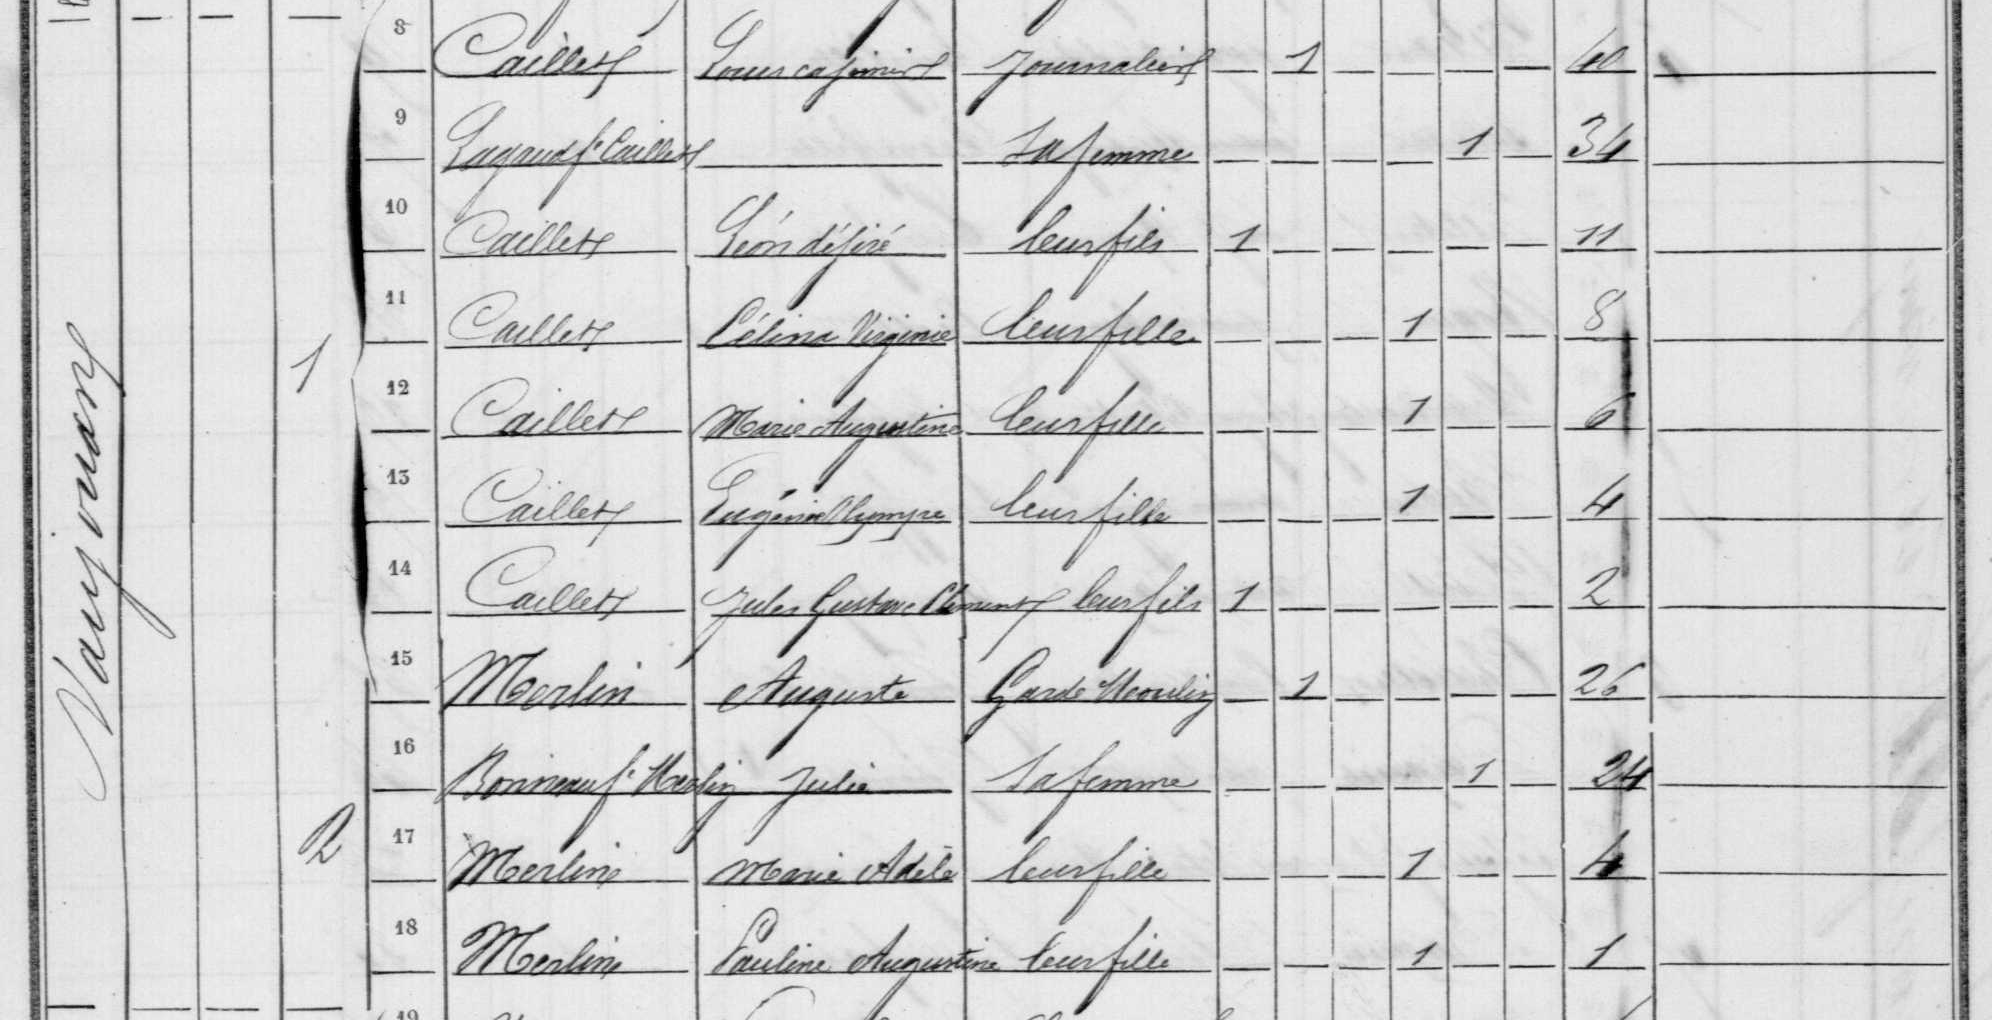 8 Caillet Louis casimir Journalier 1 40
9 Lagaud fe Caillet sa femme 1 34
10 Caillet Léon désiré leur fils 1 11
11 Caillet Célina Virginie leur fille 1 8
1
12 Caillet Marie Augustine leur fille 1 6
13 Caillet Eugénie Olympe leur fille 1 4
14 Caillet Jules Gustave Clément leur fils 1 2
15 Merlin Auguste Garde Moulin 1 26
16 Bonneau fe Merlin Julie sa femme 1 24
2
17 Merlin Marie Adèle leur fille 1 4
18 Merlin Pauline Augustine leur fille 1 1
19